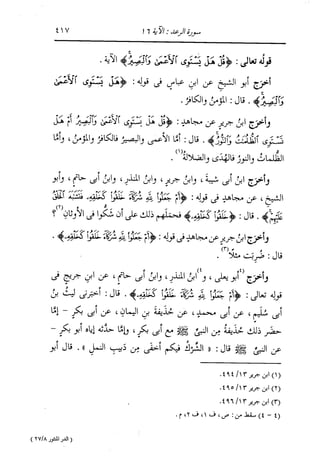 سورة الرعد : الآية ١٦ ٤١٧
قولُه تعالى : ﴿ قُلْ هَلْ يَسْتَوِى ٱلْأَعْمَىٰ وَٱلْبَصِيرُ ﴾ الآية .
أخرَج أبو الشيخ عن ابنِ عباسٍ فى قوله : ﴿ هَلْ يَسْتَوِى ٱلْأَعْمَىٰ
وَٱلْبَصِيرُ ﴾ . قال : المؤمنُ والكافرُ .
وأخرَج ابنُ جريرٍ عن مجاهدٍ : ﴿ قُلْ هَلْ يَسْتَوِى ٱلْأَعْمَىٰ وَٱلْبَصِيرُ أَمْ هَلْ
تَسْتَوِى ٱلظُّلُمَٰتُ وَٱلنُّورُ ﴾ . قال : أمَّا الأعمى والبصيرُ فالكافرُ والمؤمنُ ، وأمَّا
الظلماتُ والنورُ فالهُدَى والضلالةُ (١) .
وأخرَج ابنُ أبى شيبةَ ، وابنُ جريرٍ ، وابنُ المنذرِ ، وابنُ أبى حاتمٍ ، وأبو
الشيخِ ، عن مجاهدٍ فى قولِه : ﴿ أَمْ جَعَلُوا۟ لِلَّهِ شُرَكَآءَ خَلَقُوا۟ كَخَلْقِهِۦ فَتَشَٰبَهَ ٱلْخَلْقُ
عَلَيْهِمْ ﴾ . قال : ﴿ خَلَقُوا۟ كَخَلْقِهِۦ ﴾ فحمَلهم ذلك على أن شكُّوا فى الأوثانِ (٢) ؟
وأخرَج ابنُ جريرٍ عن مجاهدٍ فى قولِه : ﴿ أَمْ جَعَلُوا۟ لِلَّهِ شُرَكَآءَ خَلَقُوا۟ كَخَلْقِهِۦ ﴾ .
قال : ضُرِبت مثلًا (٣) .
وأخرَج (٤) أبو يعلى ، و (٤) ابنُ المنذرِ ، وابنُ أبى حاتمٍ ، عن ابنِ جريجٍ فى
قولِه تعالى : ﴿ أَمْ جَعَلُوا۟ لِلَّهِ شُرَكَآءَ خَلَقُوا۟ كَخَلْقِهِۦ ﴾ . قال : أخبَرنى ليثُ بنُ
أبى سُلَيمٍ ، عن أبى محمدٍ ، عن حذيفةَ بنِ اليمانِ ، عن أبى بكرٍ - إمَّا
حضَر ذلك حذيفةُ من النبىِّ ﷺ مع أبى بكرٍ ، وإمَّا حدَّثه إياه أبو بكرٍ -
عن النبىِّ ﷺ قال : « الشِّرْكُ فيكم أخفَى من دبيبِ النملِ » . قال أبو
(١) ابن جرير ١٣/ ٤٩٤.
(٢) ابن جرير ١٣/ ٤٩٥.
(٣) ابن جرير ١٣/ ٤٩٦.
(٤ - ٤) سقط من : ص، ف ١، ف ٢، م .
( الدر المنثور ٢٧/٨ )